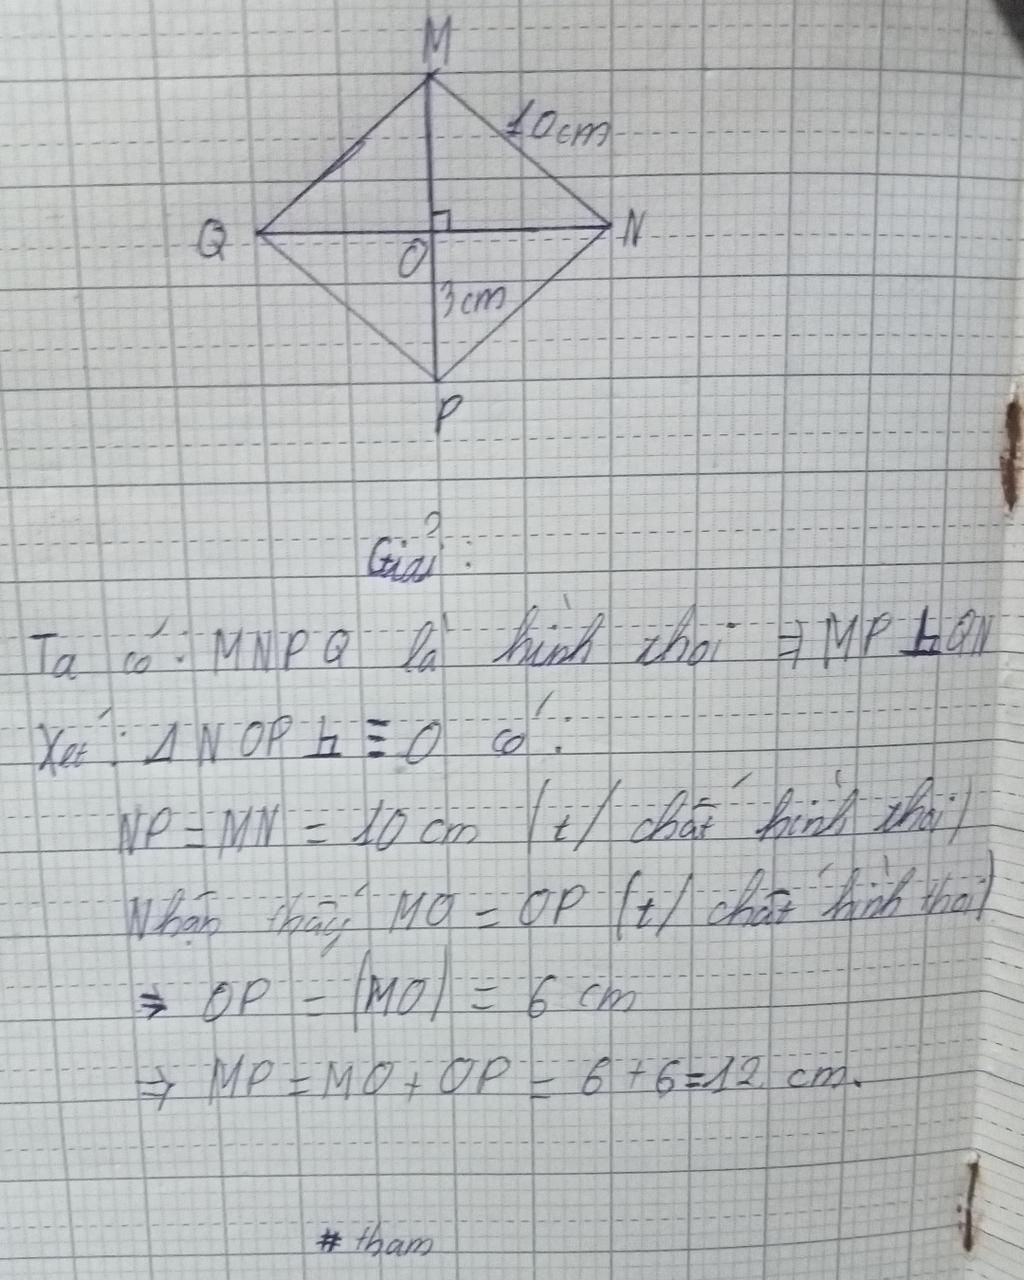 M
10cm
Q
N
O
3cm
P
Giải:
Ta có: MNPQ là hình thoi ⇒ MP ⊥ QN
Xét: Δ NOP ⊥ ≡ O có:
NP = MN = 10 cm (t/ chất hình thoi)
Nhận thấy MO = OP (t/ chất hình thoi)
⇒ OP = |MO| = 6 cm
⇒ MP = MO + OP = 6 + 6 = 12 cm.
# tham